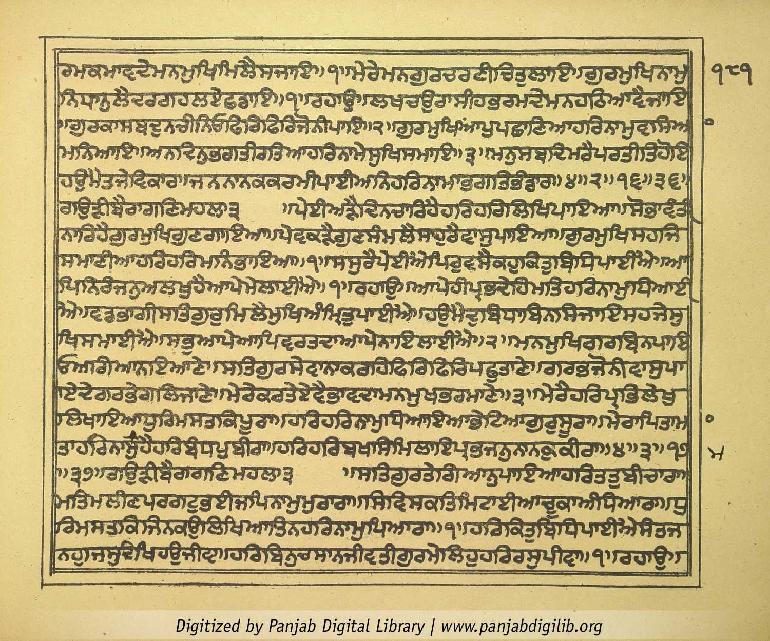 ਰਮਕਮਾਵਦੇਮਨਮੁਖਿਮਿਲੈਸਜਾਇ॥੧॥ਮੇਰੇਮਨਗੁਰਚਰਣੀਚਿਤੁਲਾਇ॥ਗੁਰਮੁਖਿਨਾਮੁ ੧੮੧
ਨਿਧਾਨੁਲੈਦਰਗਹਲਏਛਡਾਇ॥੧॥ਰਹਾਉ॥ਲਖਚਉਰਾਸੀਹਭਰਮਦੇਮਨਹਠਿਆਵੈਜਾਇ
॥ਗੁਰਕਾਸਬਦੁਨਚੀਨਿਓਫਿਰਿਫਿਰਿਜੋਨੀਪਾਇ॥੨॥ਗੁਰਮੁਖਿਆਪੁਪਛਾਣਿਆਹਰਿਨਾਮੁਵਸਿਆ
ਮਨਿਆਇ॥ਅਨਦਿਨੁਭਗਤੀਰਤਿਆਹਰਿਨਾਮੇਸੁਖਿਸਮਾਇ॥੩॥ਮਨੁਸਬਦਿਮਰੈਪਰਤੀਤਿਹੋਇ
ਹਉਮੈਤਜੇਵਿਕਾਰ॥ਜਨਨਾਨਕਕਰਮੀਪਾਈਅਨਿਹਰਿਨਾਮਾਭਗਤਿਭੰਡਾਰ॥੪॥੨॥੧੬॥੩੬॥
ਗਉੜੀਬੈਰਾਗਣਿਮਹਲਾ੩ ॥ਪੇਈਅੜੈਦਿਨਚਾਰਿਹੈਹਰਿਹਰਿਲਿਖਿਪਾਇਆ॥ਸੋਭਾਵੰਤੀ
ਨਾਰਿਹੈਗੁਰਮੁਖਿਗੁਣਗਾਇਆ॥ਪੇਵਕੜੈਗੁਣਸੰਮਲੈਸਾਹੁਰੈਵਾਸੁਪਾਇਆ॥ਗੁਰਮੁਖਿਸਹਜਿ
ਸਮਾਣੀਆਹਰਿਹਰਿਮਨਿਭਾਇਆ॥੧॥ਸਸੁਰੈਪੇਈਐਪਿਰੁਵਸੈਕਹੁਕਿਤੁਬਿਧਿਪਾਈਐ॥ਆ
ਪਿਨਿਰੰਜਨੁਅਲਖੁਹੈਆਪੇਮੇਲਾਈਐ॥੧॥ਰਹਾਉ॥ਆਪੇਹੀਪ੍ਰਭੁਦੇਹਿਮਤਿਹਰਿਨਾਮੁਧਿਆਈ
ਐ॥ਵਡਭਾਗੀਸਤਿਗੁਰੁਮਿਲੈਮੁਖਿਅੰਮ੍ਰਿਤੁਪਾਈਐ॥ਹਉਮੈਦੁਬਿਧਾਬਿਨਸਿਜਾਇਸਹਜੇਸੁ
ਖਿਸਮਾਈਐ॥ਸਭੁਆਪੇਆਪਿਵਰਤਦਾਆਪੇਨਾਇਲਾਈਐ॥੨॥ਮਨਮੁਖਿਗਰਬਿਨਪਾਇ
ਓਅਗਿਆਨਇਆਣੇ॥ਸਤਿਗੁਰਸੇਵਾਨਾਕਰਹਿਫਿਰਿਫਿਰਿਪਛੁਤਾਣੇ॥ਗਰਭਜੋਨੀਵਾਸੁਪਾ
ਇਦੇਗਰਭੇਗਲਿਜਾਣੇ॥ਮੇਰੇਕਰਤੇਏਵੈਭਾਵਦਾਮਨਮੁਖਭਰਮਾਣੇ॥੩॥ਮੇਰੈਹਰਿਪ੍ਰਭਿਲੇਖੁ
ਲਿਖਾਇਆਧੁਰਿਮਸਤਕਿਪੂਰਾ॥ਹਰਿਹਰਿਨਾਮੁਧਿਆਇਆਭੇਟਿਆਗੁਰੁਸੂਰਾ॥ਮੇਰਾਪਿਤਾਮਾ
ਤਾਹਰਿਨਾਮੁਹੈਹਰਿਬੰਧਪੁਬੀਰਾ॥ਹਰਿਹਰਿਬਖਸਿਮਿਲਾਇਪ੍ਰਭਜਨੁਨਾਨਕੁਕੀਰਾ॥੪॥੩॥੧੭
॥੩੭॥ਗਉੜੀਬੈਰਾਗਣਿਮਹਲਾ੩ ॥ਸਤਿਗੁਰਤੇਗਿਆਨੁਪਾਇਆਹਰਿਤਤੁਬੀਚਾਰਾ
ਮਤਿਮਲੀਣਪਰਗਟੁਭਈਜਪਿਨਾਮੁਮੁਰਾਰਾ॥ਸਿਵਿਸਕਤਿਮਿਟਾਈਆਚੂਕਾਅੰਧਿਆਰਾ॥ਧੁ
ਰਿਮਸਤਕਿਜਿਨਕਉਲਿਖਿਆਤਿਨਹਰਿਨਾਮੁਪਿਆਰਾ॥੧॥ਹਰਿਕਿਤੁਬਿਧਿਪਾਈਐਸੰਤਜ
ਨਹੁਜਿਸੁਦੇਖਿਹਉਜੀਵਾ॥ਹਰਿਬਿਨੁਚਸਾਨਜੀਵਤੀਗੁਰਮੇਲਿਹੁਹਰਿਰਸੁਪੀਵਾ॥੧॥ਰਹਾਉ॥
Digitized by Panjab Digital Library | www.panjabdigilib.org